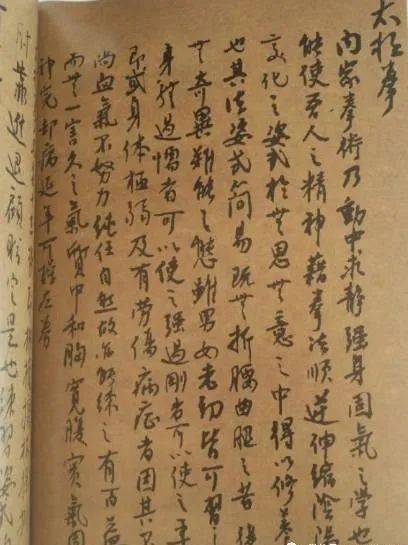 太極拳
内家拳術乃動中求静强身固氣之學也
能使吾人之精神藉拳法順逆伸縮陰陽
变化之姿式於無思無意之中得以修養
也其法姿式简易既無折腰曲腿之苦
無奇異難能之態雖男女老幼皆可習之
身於過懦者可以使之强過剛者可以使之柔
即或身体極弱及有劳傷病症者因其不
尚血氣不努力純任自然故亦能練之有百益
而無一害久之氣質中和胸寬腹實氣固
神完却病延年可操左券
附靠進退顧盼定是也練習姿式